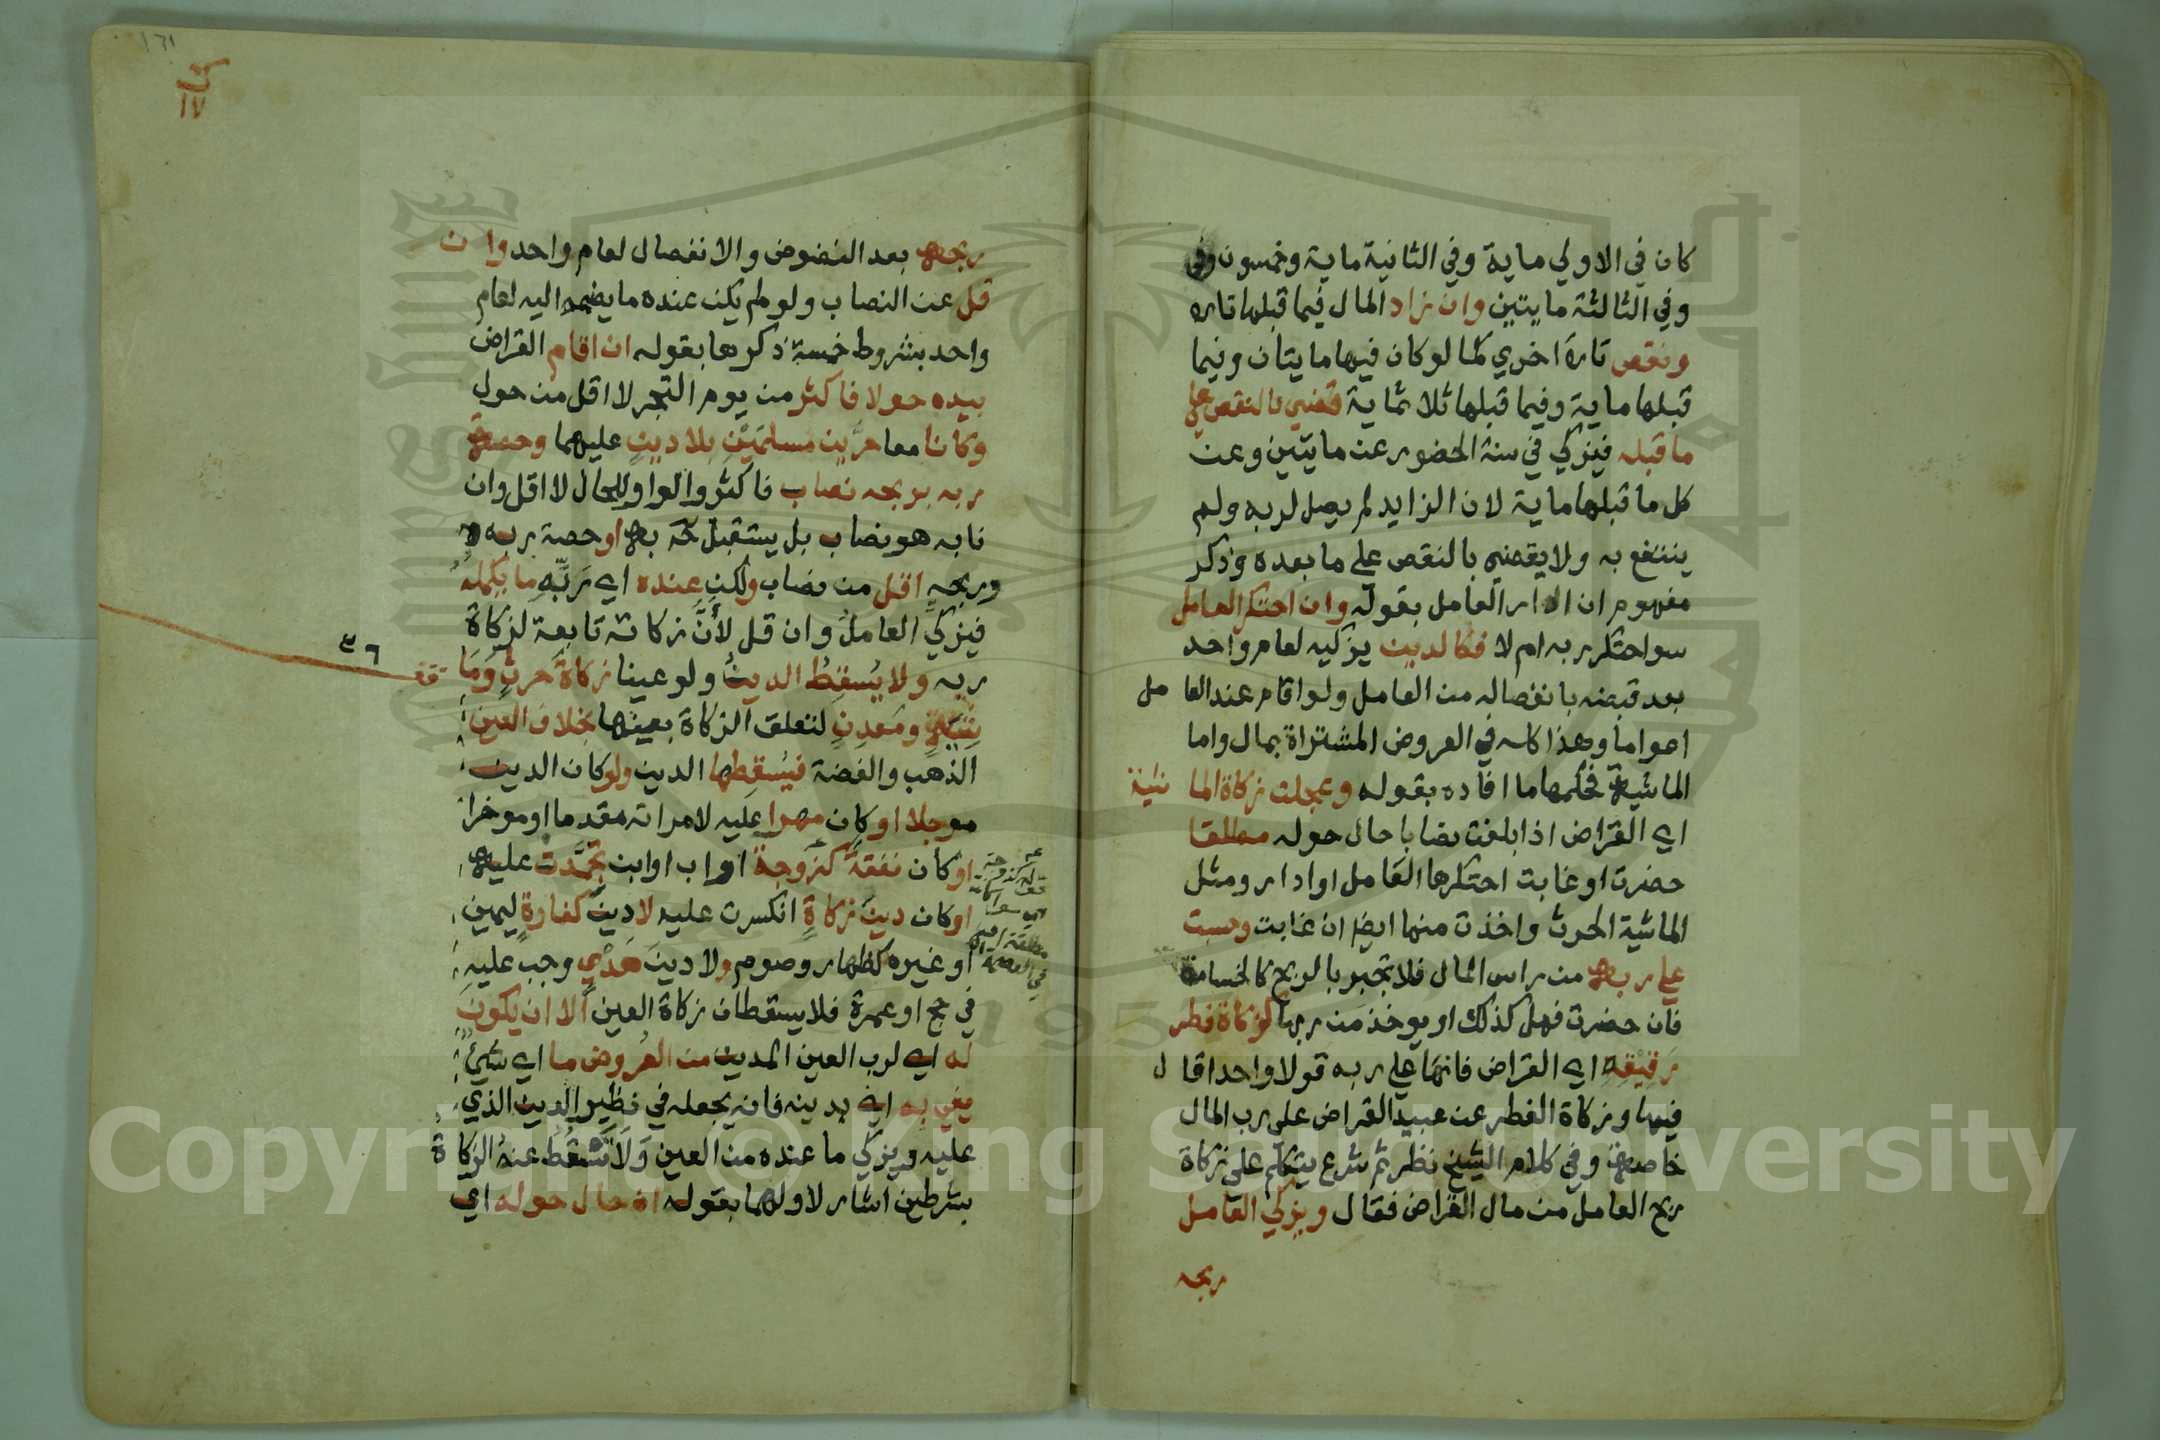 كان في الاولي ماية وفي الثانية ماية وخمسون وفي
وفي الثالثة مايتين وان زاد المال فيما قبلها تارة
ونقص تارة اخري كما لو كان فيها مايتان وفيما
قبلها ماية وفيما قبلها ثلاثماية قضي بالنقص علي
ما قبله فيزكي في سنة الحضور عن مايتين وعن
كل ما قبلها ماية لان الزايد لم يصل لربه ولم
ينتفع به ولا يقضي بالنقص علي ما بعده وذكر
مفهوم ان ادار العامل بقوله وان احتكر العامل
سوا احتكر ربه ام لا فكالدين يزكيه لعام واحد
بعد قبضه بانفصاله من العامل ولو اقام عند العامل
اعواما وهذا كله في العروض المشتراة بمال واما
الماشية فحكمها ما افاده بقوله وعجلت زكاة الماشية
اي القراض اذا بلغت نصابا حال حوله مطلقا
حضرت او غابت احتكرها العامل او ادار ومثل
الماشية الحرث واخذت منها ايضا ان غابت وحسبت
علي ربه من راس المال فلا تجبر بالربح كالخسارة
فان حضرت فهل كذلك او يوخذ من ربها كزكاة فطر
رقيقه اي القراض فانها علي ربه قولا واحدا قال
فيها وزكاة الفطر عن عبيد القراض علي رب المال
خاصة وفي كلام الشيخ نظر ثم شرع يتكلم علي زكاة
ربح العامل من مال القراض فقال ويزكي العامل
ربحه
١٦١
ك
١٧
ربحه بعد النضوض والانفصال لعام واحد وان
قل عن النصاب ولو لم يكن عنده ما يضمه اليه لعام
واحد بشروط خمسة ذكرها بقوله ان اقام القراض
بيده حولا فاكثر من يوم التجر لا اقل من حول
وكانا معا حرين مسلمين بلا دين عليهما وحصة
ربه بربحه نصاب فاكثر والواو للحال لا اقل وان
نابه هو نصاب بل يستقبل به او حصة ربه
وربحه اقل من نصاب ولكن عنده اي ربه ما يكمله
فيزكي العامل وان قل لأن زكاته تابعة لزكاة
ربه ولا يسقط الدين ولو عينا زكاة حرث وما
قف
٣٦
شية ومعدن لتعلق الزكاة بعينها بخلاف العين
الذهب والفضة فيسقطها الدين ولو كان الدين
موجلا او كان مهرا عليه لامراته مقدما او موخرا
او كان نفقة كزوجة او اب او ابن تجمدت عليه
او كان دين زكاة انكسرت عليه لا دين كفارة ليمين
او غيره كظهار وصوم ولا دين هدي وجب عليه
في حج او عمرة فلا يسقطان زكاة العين الا ان يكون
له اي لرب العين المدين من العروض ما اي شيئ
يفي به اي بدينه فانه يجعله في نظير الدين الذي
عليه ويزكي ما عنده من العين ولا تسقط عنه الزكاة
بشرطين اشار لاولهما بقوله ان حال حوله اي
Copyright © King Saud University
1957